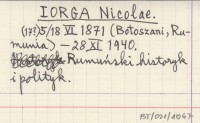 IORGA Nicolae.
5/18 VI 1871 (Botoszani, Ru-
munia) — 28 XI 1940.
Rumuński historyk
i polityk.